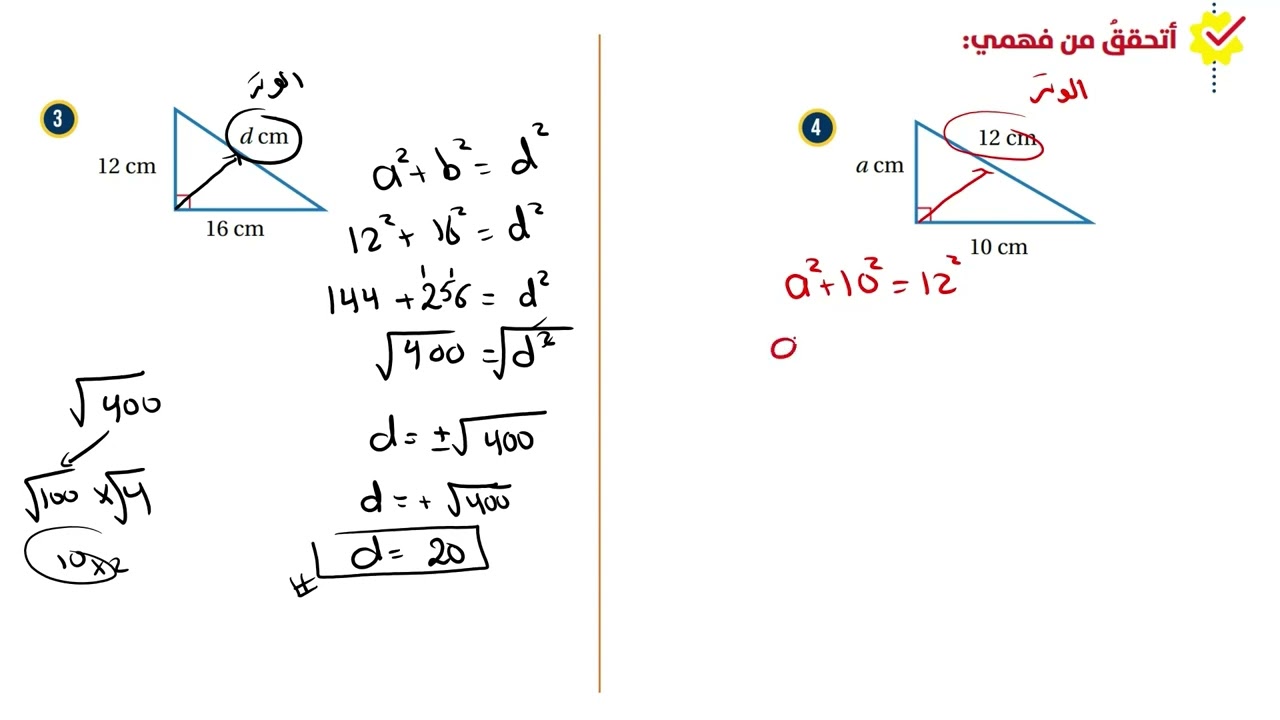 أتحققُ من فهمي:
3
الوتر
d cm
12 cm
16 cm
a² + b² = d²
12² + 16² = d²
1 1
144 + 256 = d²
√400 = √d²
d = ±√400
d = + √400
d = 20
√400
√100 × √4
10 × 2
4
الوتر
12 cm
a cm
10 cm
a² + 10² = 12²